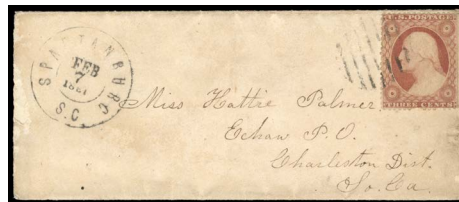 SPARTANBURG
FEB
7
1861
S.C.
U.S. POSTAGE
THREE CENTS
Miss Hattie Palmer
Echaw P.O.
Charleston Dist.
So. Ca.